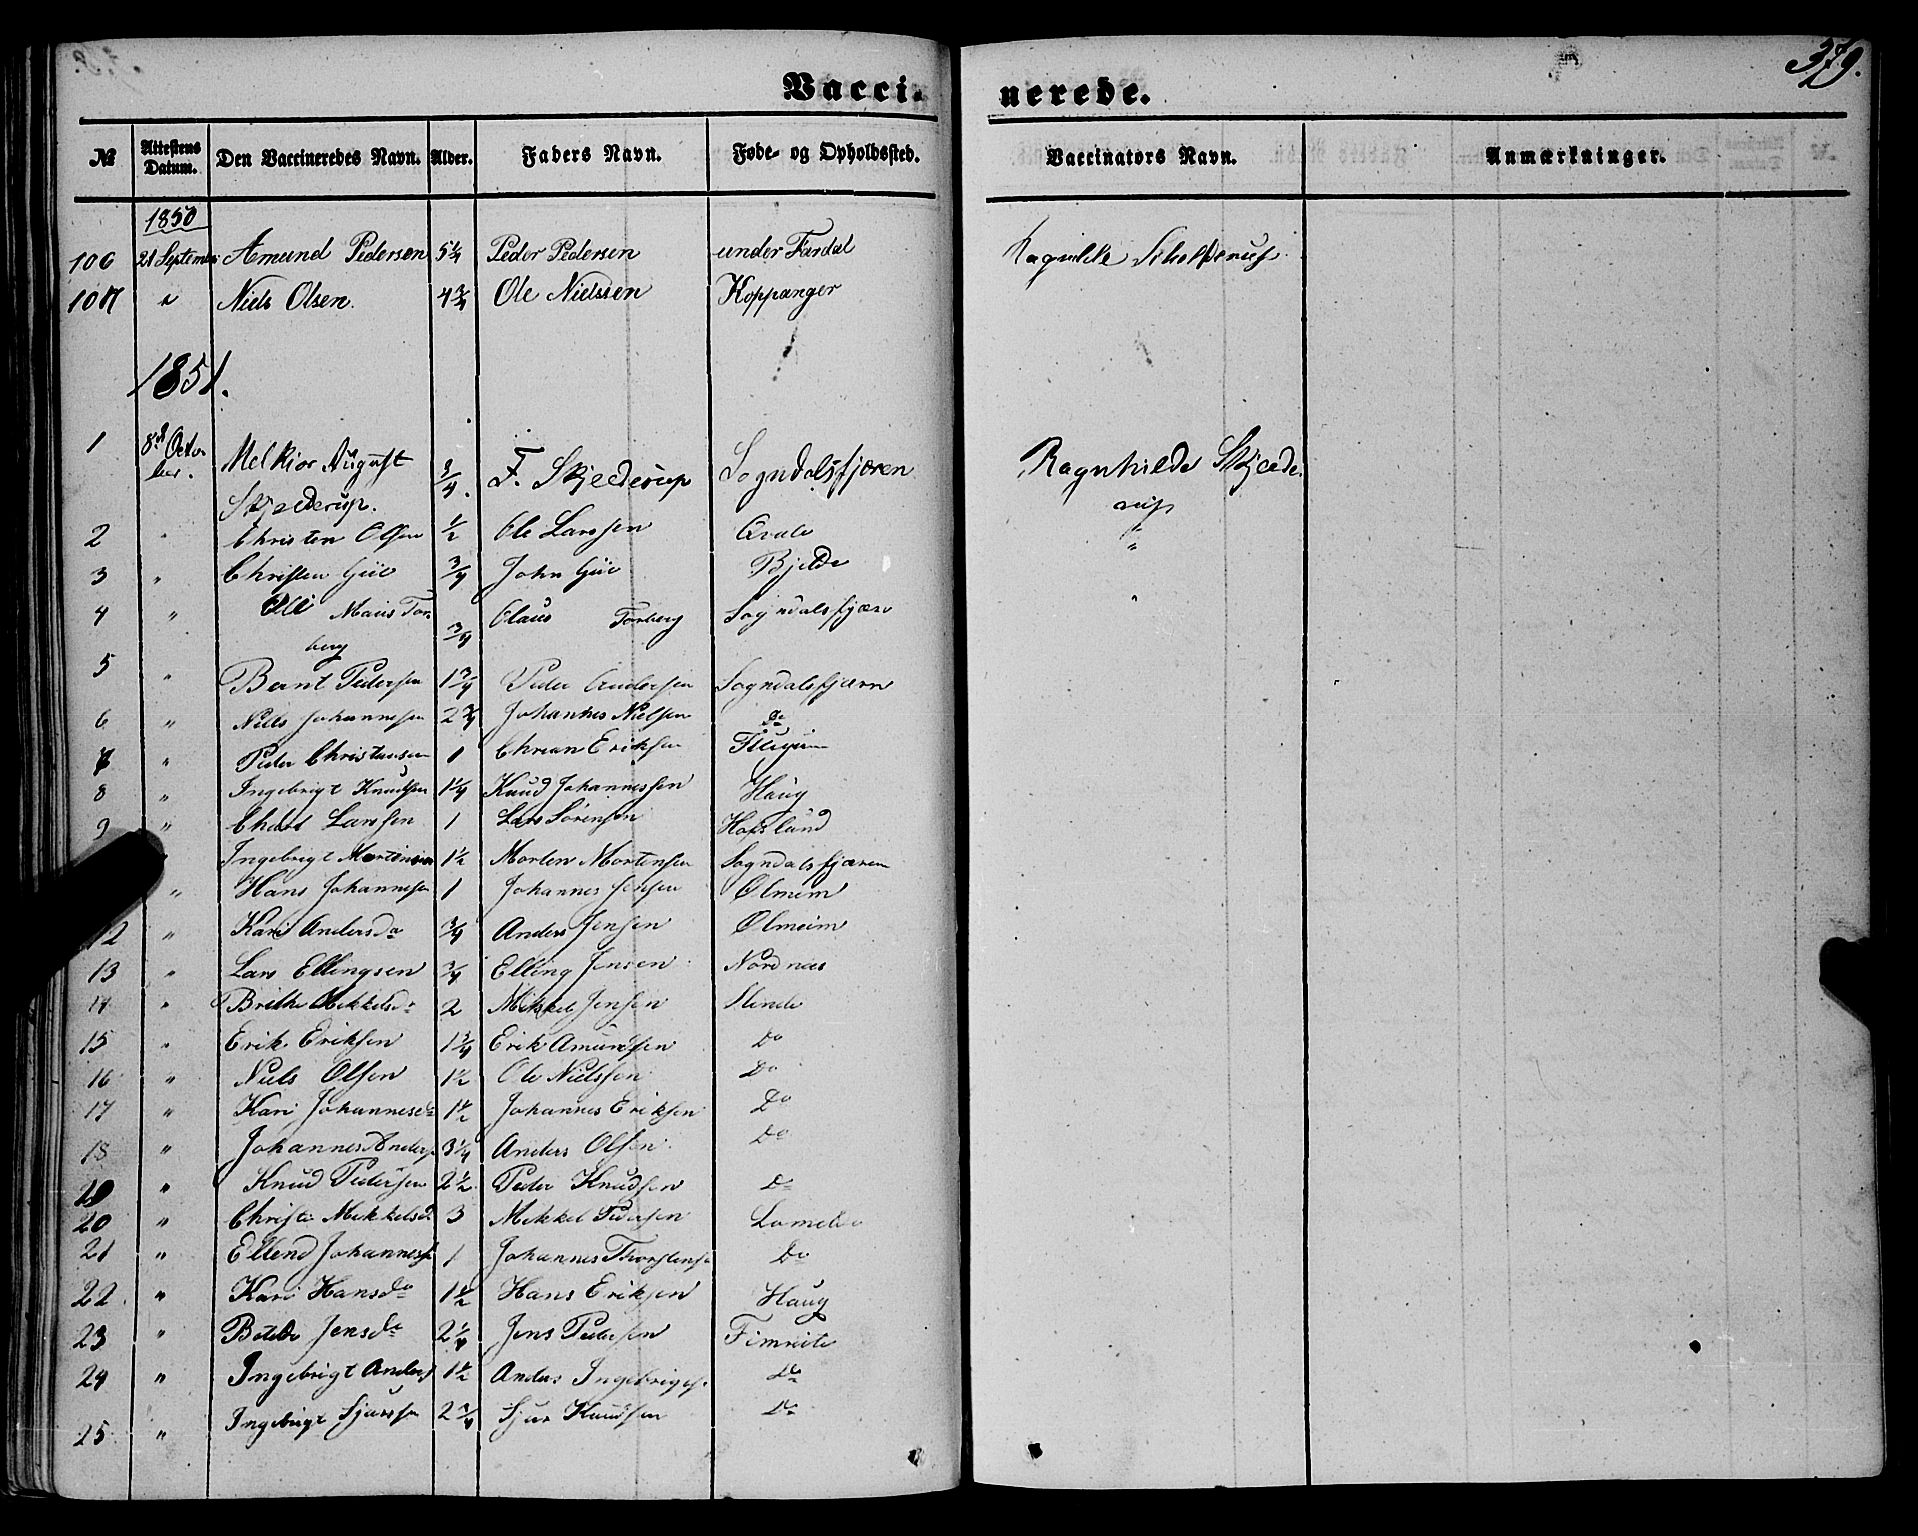 379.
Vacci- nerede.
№ Attestens Datum. Den Vaccineredes Navn. Alder. Faders Navn. Føde- og Opholdssted. Vaccinators Navn. Anmærkninger.
1850
106 21 September Amund Pedersen 5 1/4 Peder Pedersen under Fardal
107 " Niels Olsen. 4 3/4 Ole Nielssen Koppanger
1851.
1 8de Octo- Melkior August 3/4. F. Skjelderup Sogndalsfjæren Ragnhilde Skjelde-
ber. Skjelderup. rup
2 " Christen Olsen 1/2 Ole Larssen Qvale "
3 " Christen Giil 3/4 John Giil Bjelde "
4 " Maus Tor- 3/4 Claus Torberg Sogndalsfjære "
berg
5 " Bernt Pedersen 1 3/4 Peder Andersen Sogndalsfjæren
6 " Niels Johannesen 2 3/4 Johannes Nielsen Do
7 " Peder Christiansen 1 Chrian Eriksen
8 " Ingebrigt Knudsen 1 1/4 Knud Johannessen Haug
9 " Larssen 1 Lars Sørensen Hofslund
Ingebrigt Mortensen 1 1/2 Morten Mortensen Sogndalsfjæren
" Hans Johannesen 1 Johannes Jensen Ølmeim
12 " Kari Andersda 3/4 Anders Jensen Ølmeim
13 " Lars Ellingsen 3/4 Elling Jensen Nordnæs
14 " Brithe Mikkelsdr 2 Mikkel Jensen Slinde
15 " Erik Eriksen 1 3/4 Erik Amundsen Do
16 " Niels Olsen 1 1/2 Ole Nielssen Do
17 " Kari Johannesda 1 1/2 Johannes Eriksen Do
18 " Johannes Anders 3 1/4 Anders Olsen Do
" Knud Pedersen 2 1/2 Peder Knudsen Do
20 " Christi Mikkelsd 3 Mikkel Pedersen Lomelde
21 " Ellend Johannes 1 Johannes Thorstens Do
22 " Kari Hansda 1 1/2 Hans Eriksen Haug
23 " Jensda 2 1/4 Jens Pedersen Fimreite
24 " Ingebrigt Anders 1 1/2 Anders Ingebrigts. Do
25 " Ingebrigt Sjurssen 2 3/4 Sjur Knudsen Do